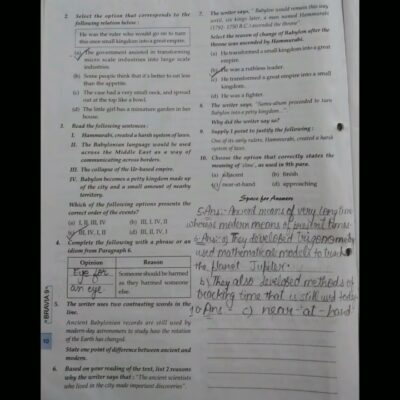 2. Select the option that corresponds to the
following relation below :
He was the ruler who would go on to turn
this once small kingdom into a great empire.
(a) The government assisted in transforming
micro scale industries into large scale
industries.
(b) Some people think that it's better to eat less
than the appetite.
(c) The case had a very small neck, and spread
out at the top like a bowl.
(d) The little girl has a miniature garden in her
house.
3. Read the following sentences :
I. Hammurabi, created a harsh system of laws.
II. The Babylonian language would be used
across the Middle East as a way of
communicating across borders.
III. The collapse of the Ur-based empire.
IV. Babylon becomes a petty kingdom made up
of the city and a small amount of nearby
territory.
Which of the following options presents the
correct order of the events?
(a) I, II, III, IV (b) III, I, IV, II
(c) III, IV, I, II (d) IV, I, II, III
4. Complete the following with a phrase or an
idiom from Paragraph 6.
Opinion Reason
Eye for
an eye
Someone should be harmed
as they harmed someone
else.
5. The writer uses two contrasting words in the
line.
Ancient Babylonian records are still used by
modern-day astronomers to study how the rotation
of the Earth has changed.
State one point of difference between ancient and
modern.
6. Based on your reading of the text, list 2 reasons
why the writer says that : "The ancient scientists
who lived in the city made important discoveries".
BRAVIA 9
10
7. The writer says, " Babylon would remain this way
until, six kings later, a man named Hammurabi
(1792- 1750 B.C.) ascended the throne"
Select the reason of change of Babylon after the
throne was ascended by Hammurabi.
(a) He transformed a small kingdom into a great
empire.
(b) He was a ruthless leader.
(c) He transformed a great empire into a small
kingdom.
(d) He was a fighter.
8. The writer says, "Sumu-abum proceeded to turn
Babylon into a petty kingdom..."
Why did the writer say so?
9. Supply 1 point to justify the following :
One of its early rulers, Hammurabi, created a harsh
system of laws.
10. Choose the option that correctly states the
meaning of 'close', as used in 9th para.
(a) adjacent (b) finish
(c) near-at-hand (d) approaching
Space for Answers
5 Ans:- Ancient means of very long time
whereas modern means of present times.
6 Ans:- a) They developed Trigonometry
used mathematical models to track
the planet Jupiter.
b) They also developed methods of
tracking time that is still used today
10 Ans c) near-at-hand